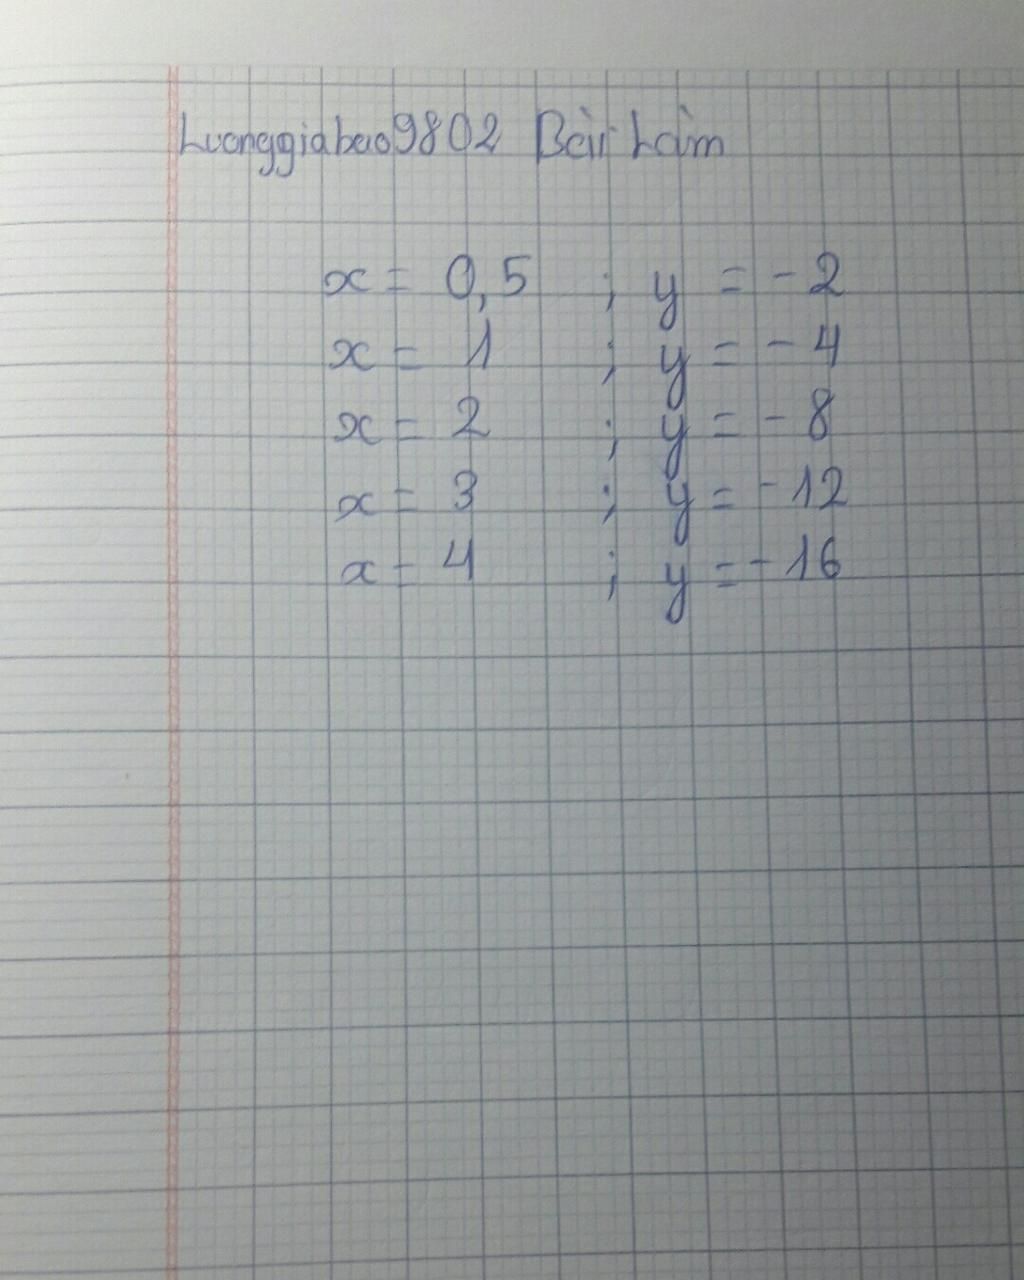 Luonggiabao9802 Bài Làm
x = 0,5 ; y = - 2
x = 1 ; y = - 4
x = 2 ; y = - 8
x = 3 ; y = - 12
x = 4 ; y = - 16